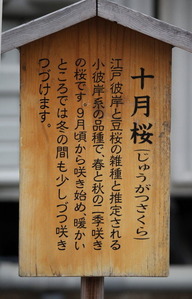 十月桜(じゅうがつざくら)
江戸彼岸と豆桜の雑種と推定される
小彼岸系の品種で、春と秋の二季咲き
の桜です。9月頃から咲き始め、暖かい
ところでは冬の間も少しづつ咲き
つづけます。